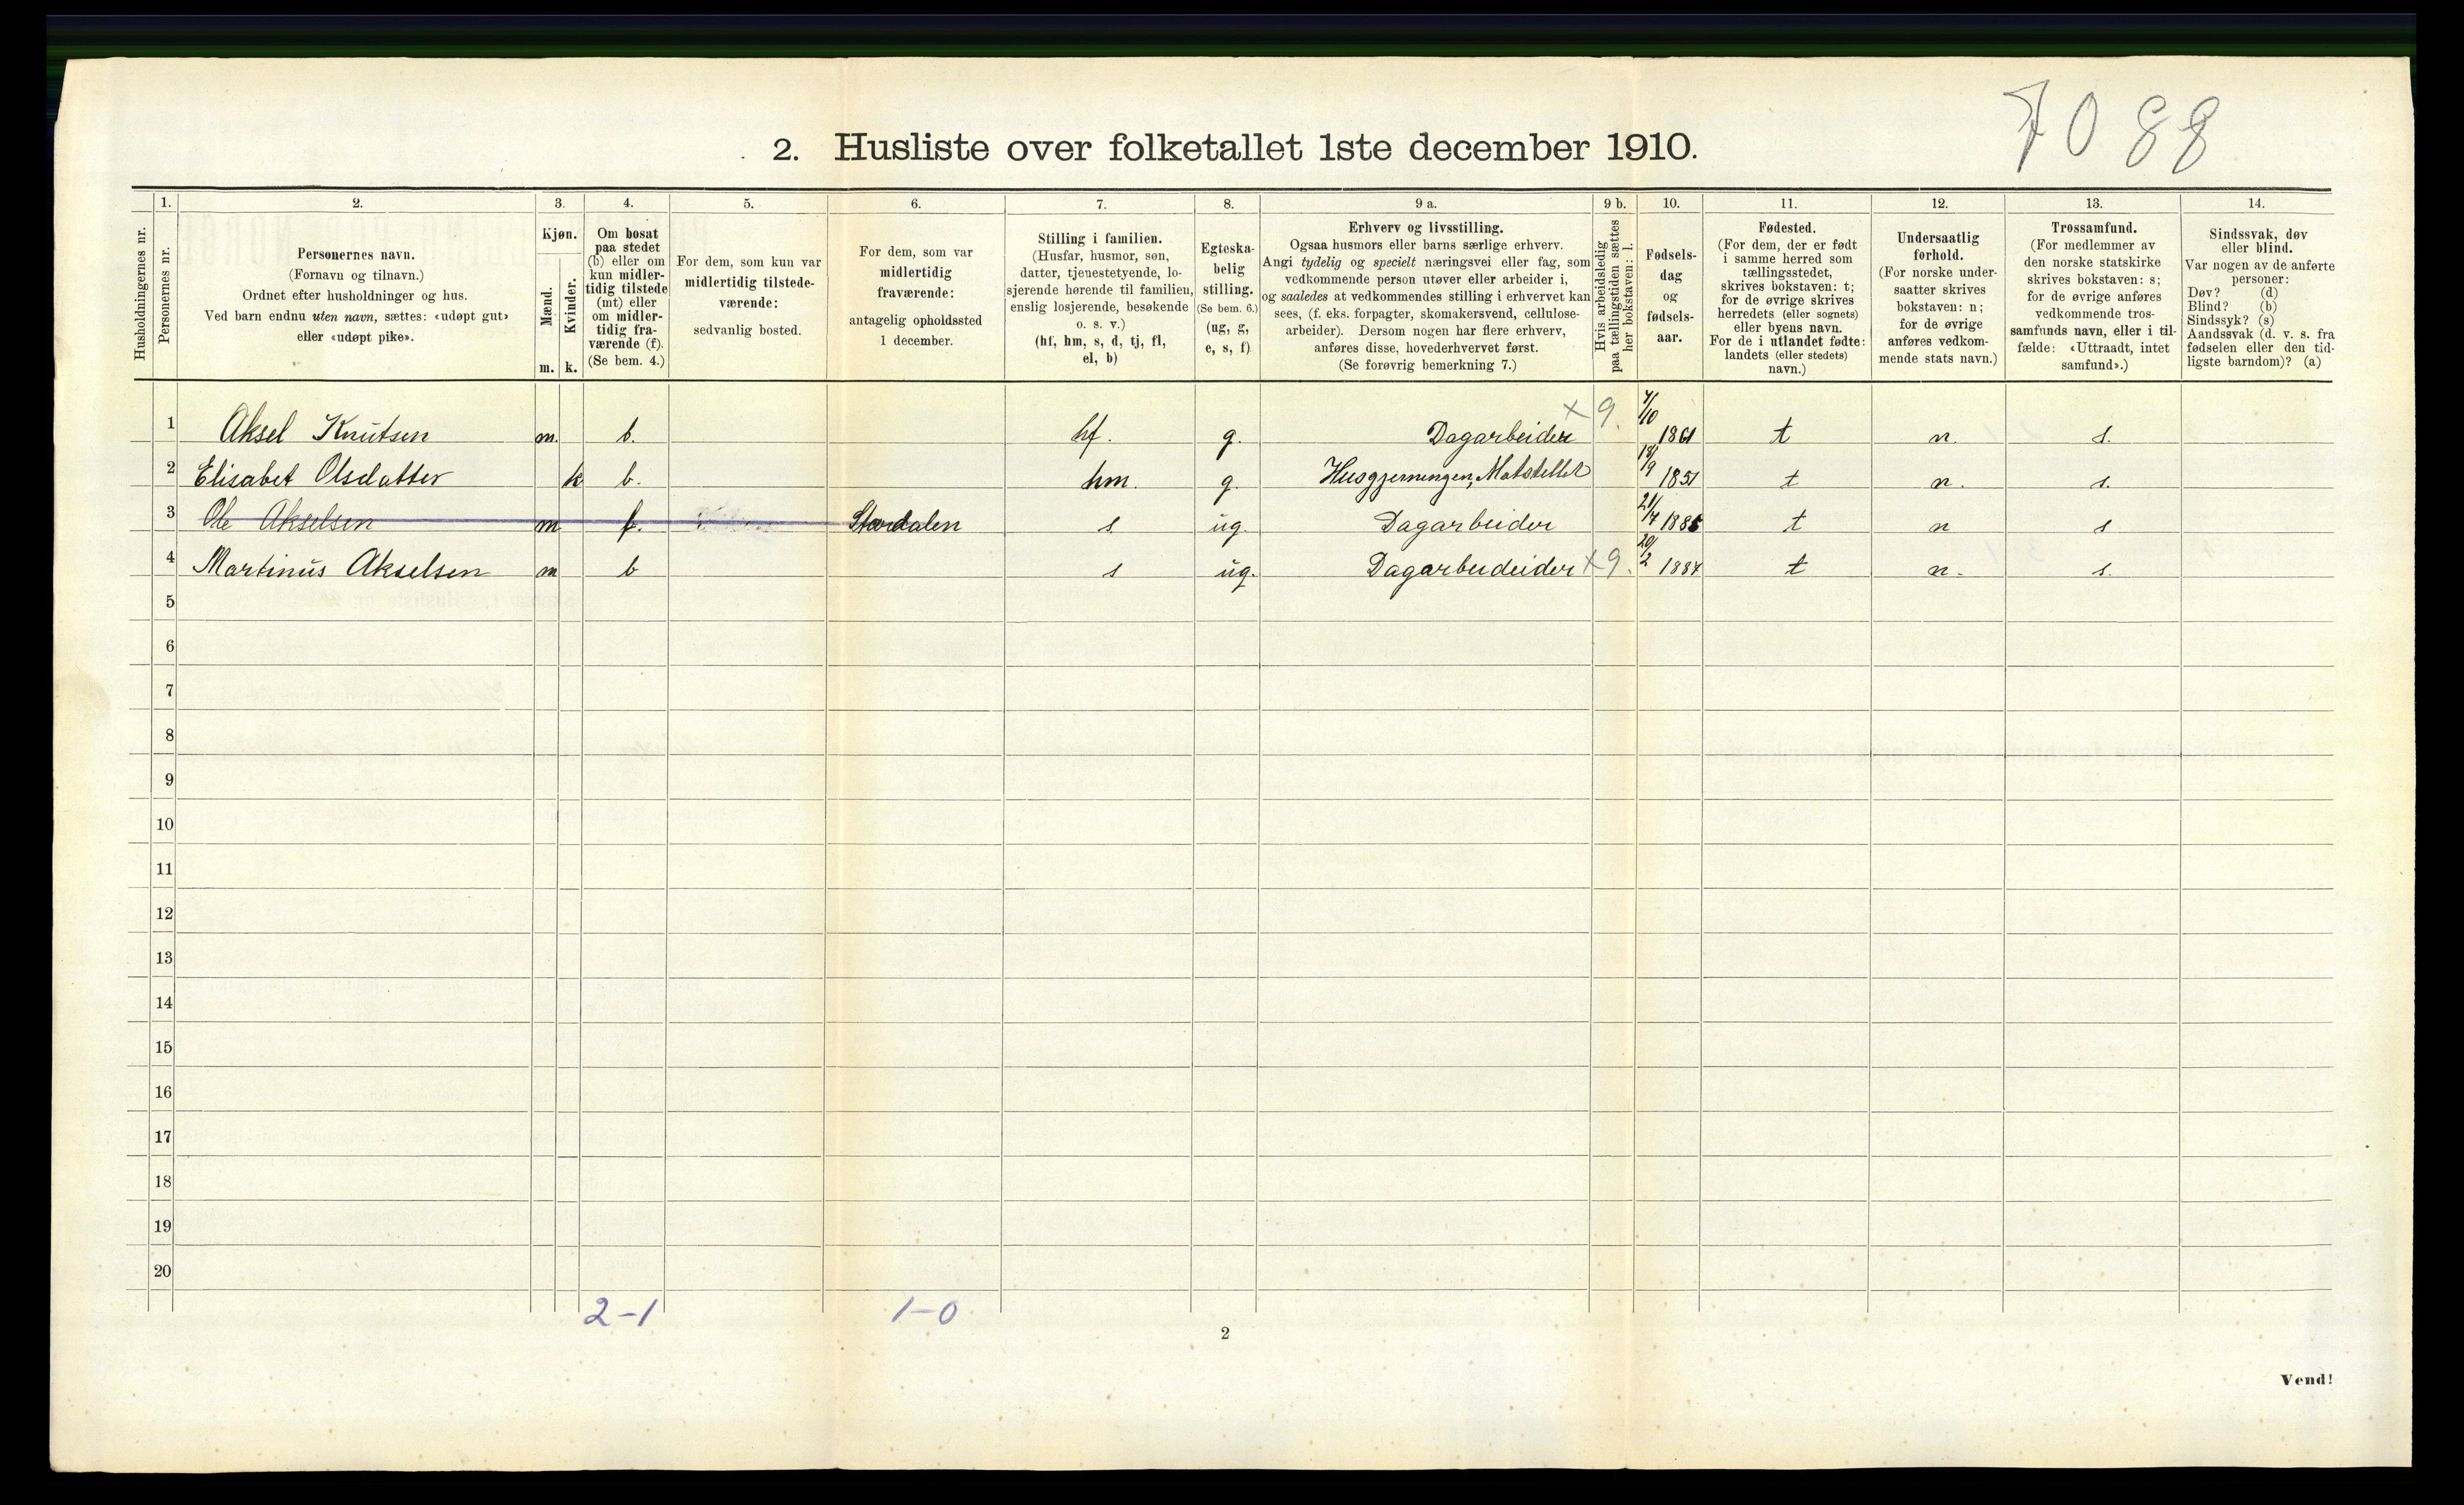 7088
2. Husliste over folketallet 1ste december 1910.
Husholdningernes nr.
1.
Personernes nr.
2.
Personernes navn.
(Fornavn og tilnavn.)
Ordnet efter husholdninger og hus.
Ved barn endnu uten navn, sættes: «udøpt gut»
eller «udøpt pike».
3.
Kjøn.
Mænd.
m.
Kvinder.
k.
4.
Om bosat
paa stedet
(b) eller om
kun midler-
tidig tilstede
(mt) eller
om midler-
tidig fra-
værende (f).
(Se bem. 4.)
5.
For dem, som kun var
midlertidig tilstede-
værende:
sedvanlig bosted.
6.
For dem, som var
midlertidig
fraværende:
antagelig opholdssted
1 december.
7.
Stilling i familien.
(Husfar, husmor, søn,
datter, tjenestetyende, lo-
sjerende hørende til familien,
enslig losjerende, besøkende
o. s. v.)
(hf, hm, s, d, tj, fl,
el, b)
8.
Egteska-
belig
stilling.
(Se bem. 6.)
(ug, g,
e, s, f)
9 a.
Erhverv og livsstilling.
Ogsaa husmors eller barns særlige erhverv.
Angi tydelig og specielt næringsvei eller fag, som
vedkommende person utøver eller arbeider i,
og saaledes at vedkommendes stilling i erhvervet kan
sees, (f. eks. forpagter, skomakersvend, cellulose-
arbeider). Dersom nogen har flere erhverv,
anføres disse, hovederhvervet først.
(Se forøvrig bemerkning 7.)
9 b.
Hvis arbeidsledig
paa tællingstiden sættes
her bokstaven: l.
10.
Fødsels-
dag
og
fødsels-
aar.
11.
Fødested.
(For dem, der er født
i samme herred som
tællingsstedet,
skrives bokstaven: t;
for de øvrige skrives
herredets (eller sognets)
eller byens navn.
For de i utlandet fødte:
landets (eller stedets)
navn.)
12.
Undersaatlig
forhold.
(For norske under-
saatter skrives
bokstaven: n;
for de øvrige
anføres vedkom-
mende stats navn.)
13.
Trossamfund.
(For medlemmer av
den norske statskirke
skrives bokstaven: s;
for de øvrige anføres
vedkommende tros-
samfunds navn, eller i til-
fælde: «Uttraadt, intet
samfund».)
14.
Sindssvak, døv
eller blind.
Var nogen av de anførte
personer:
Døv? (d)
Blind? (b)
Sindssyk? (s)
Aandssvak (d. v. s. fra
fødselen eller den tid-
ligste barndom)? (a)
1 Aksel Knutsen m. b. hf. g. Dagarbeider × 9. 4/10 1861 t n. s.
2 Elisabet Olsdatter k b. hm. g. Husgjerningen, Matstellet 18/9 1851 t n. s.
3 Ole Akselsen m f. Stordalen s ug. Dagarbeider 21/7 1885 t n s
4 Martinus Akselsen m b s ug. Dagarbeideider × 9. 20/2 1887 t n. s.
5
6
7
8
9
10
11
12
13
14
15
16
17
18
19
20
2-1 1-0
2
Vend!